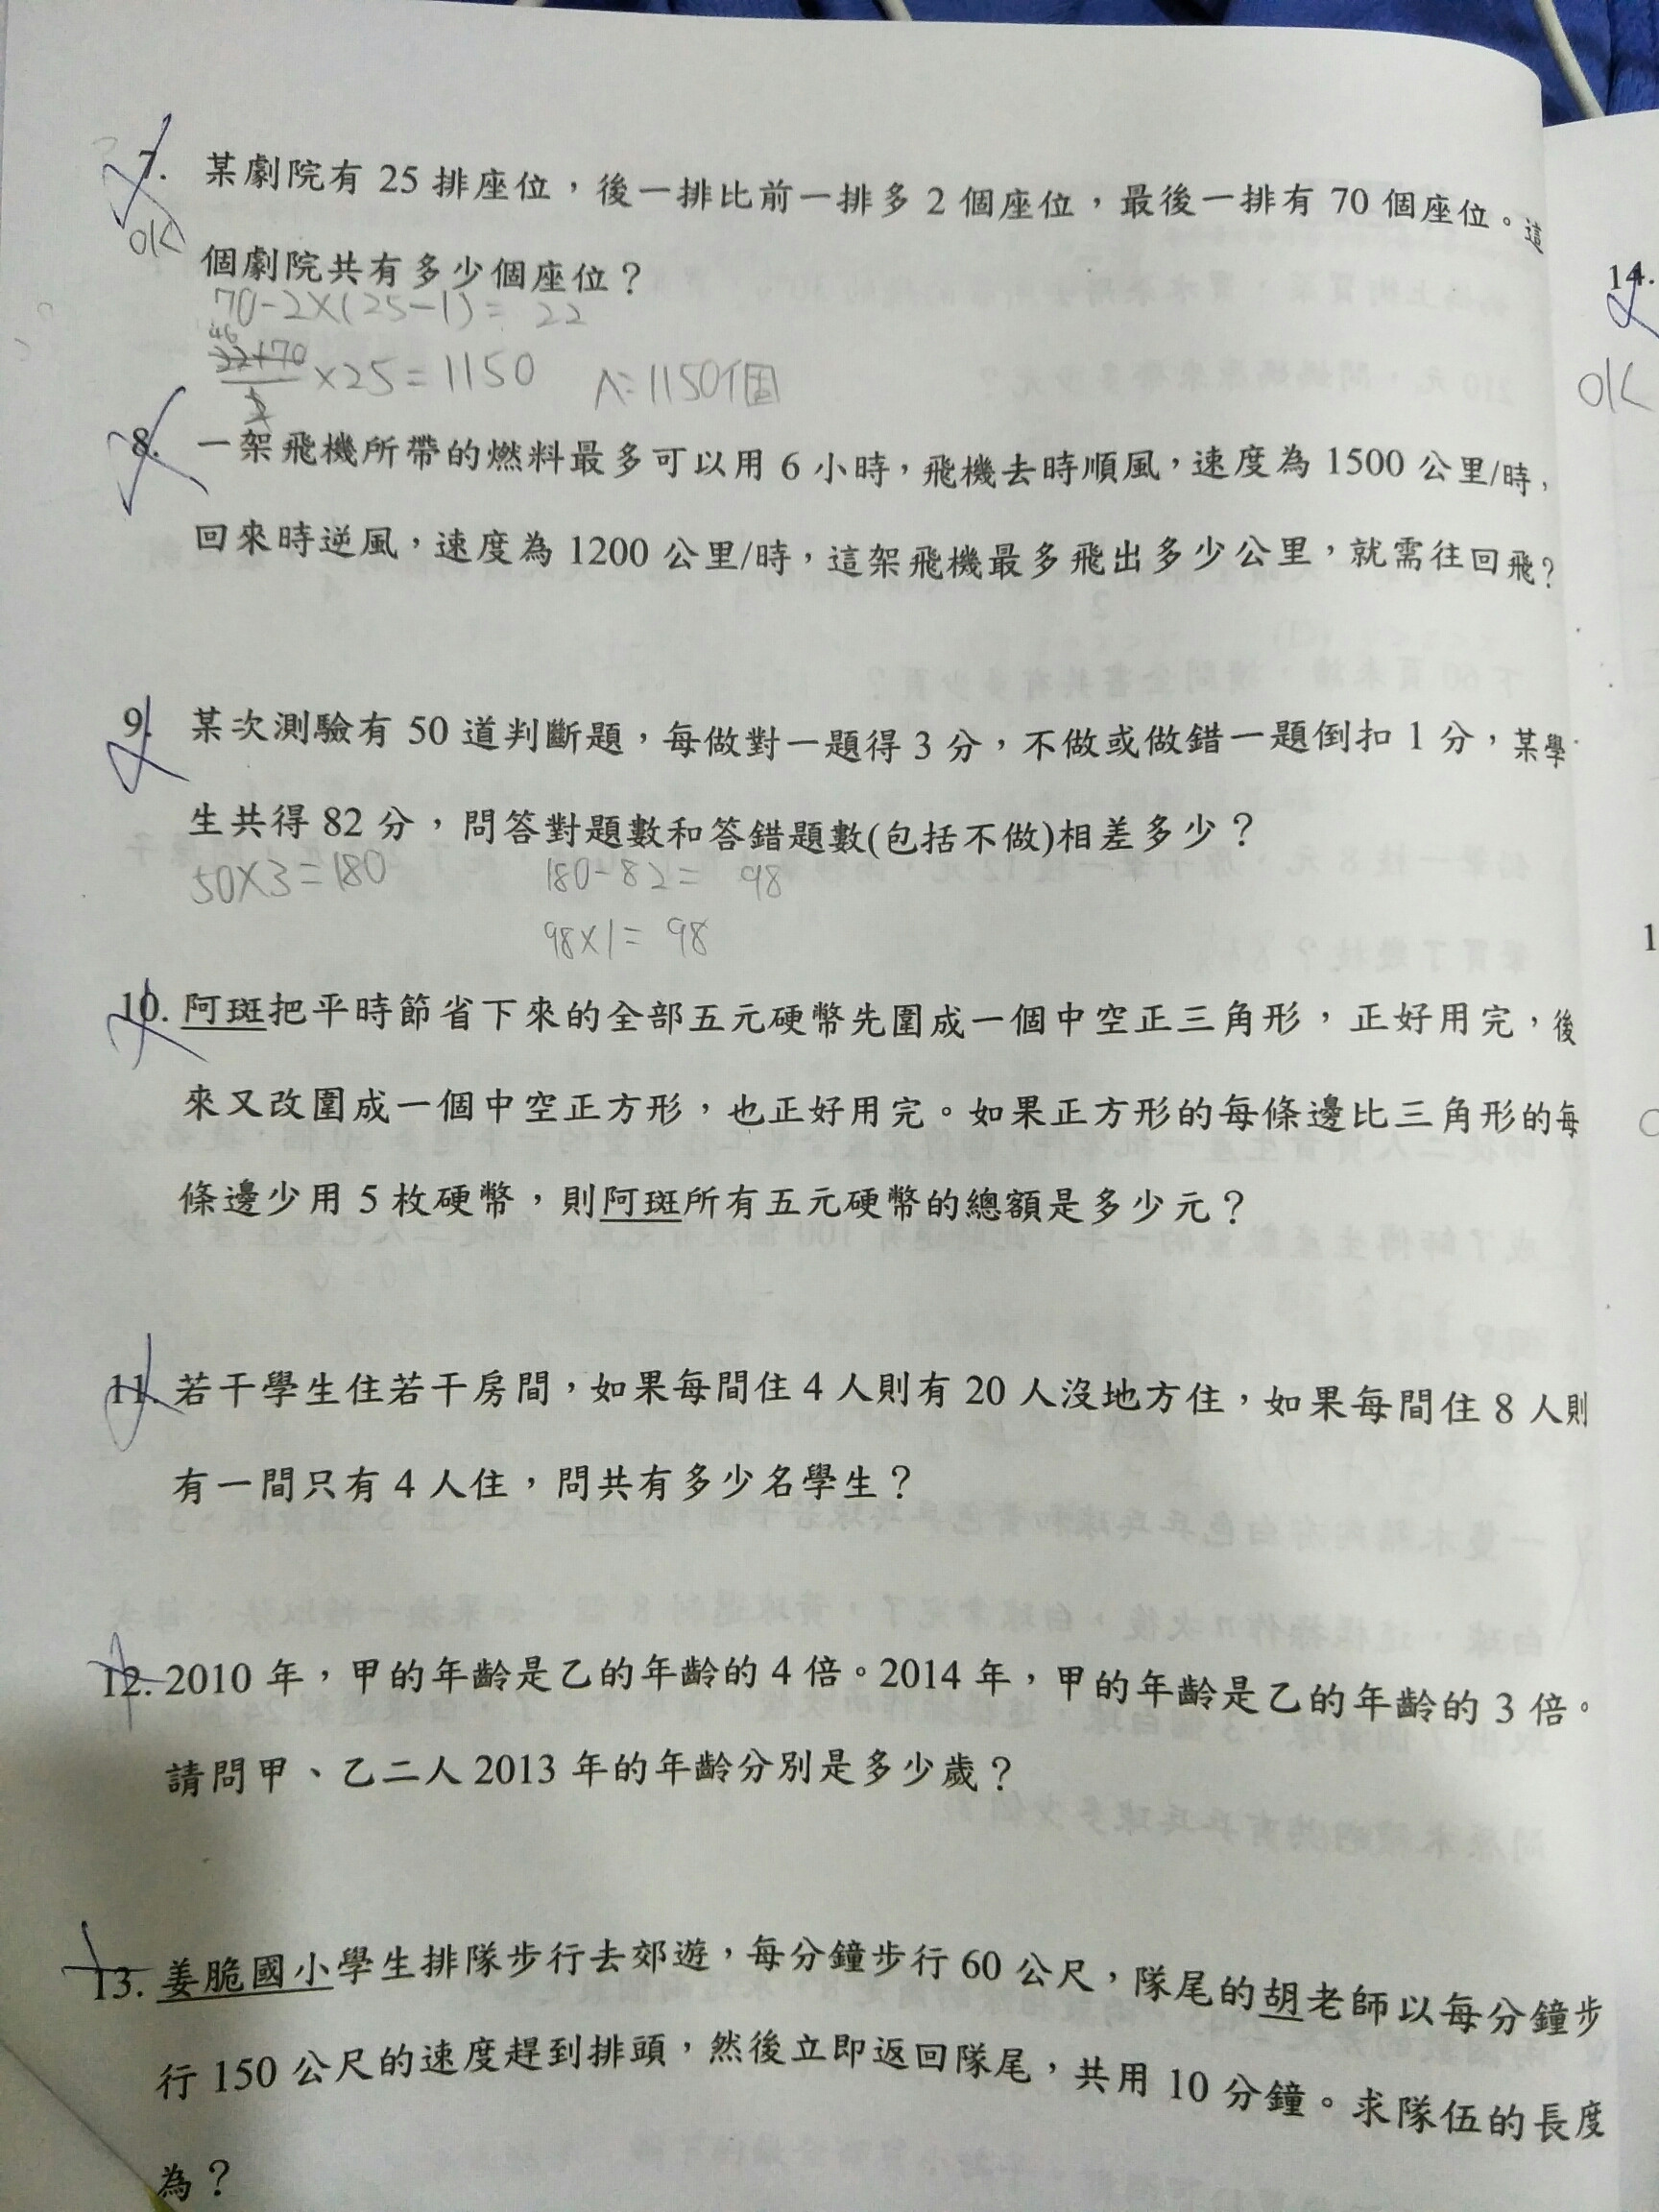 7. 某劇院有 25 排座位，後一排比前一排多 2 個座位，最後一排有 70 個座位。這
OK
個劇院共有多少個座位？
70-2×(25-1)=22
46
22+70/2 ×25=1150 A:1150個
8. 一架飛機所帶的燃料最多可以用 6 小時，飛機去時順風，速度為 1500 公里/時，
回來時逆風，速度為 1200 公里/時，這架飛機最多飛出多少公里，就需往回飛？
9. 某次測驗有 50 道判斷題，每做對一題得 3 分，不做或做錯一題倒扣 1 分，某學
生共得 82 分，問答對題數和答錯題數(包括不做)相差多少？
50×3=180 180-82= 98
98×1= 98
10. 阿斑把平時節省下來的全部五元硬幣先圍成一個中空正三角形，正好用完，後
來又改圍成一個中空正方形，也正好用完。如果正方形的每條邊比三角形的每
條邊少用 5 枚硬幣，則阿斑所有五元硬幣的總額是多少元？
11. 若干學生住若干房間，如果每間住 4 人則有 20 人沒地方住，如果每間住 8 人則
有一間只有 4 人住，問共有多少名學生？
12. 2010 年，甲的年齡是乙的年齡的 4 倍。2014 年，甲的年齡是乙的年齡的 3 倍。
請問甲、乙二人 2013 年的年齡分別是多少歲？
13. 姜脆國小學生排隊步行去郊遊，每分鐘步行 60 公尺，隊尾的胡老師以每分鐘步
行 150 公尺的速度趕到排頭，然後立即返回隊尾，共用 10 分鐘。求隊伍的長度
為？
14.
OK
1